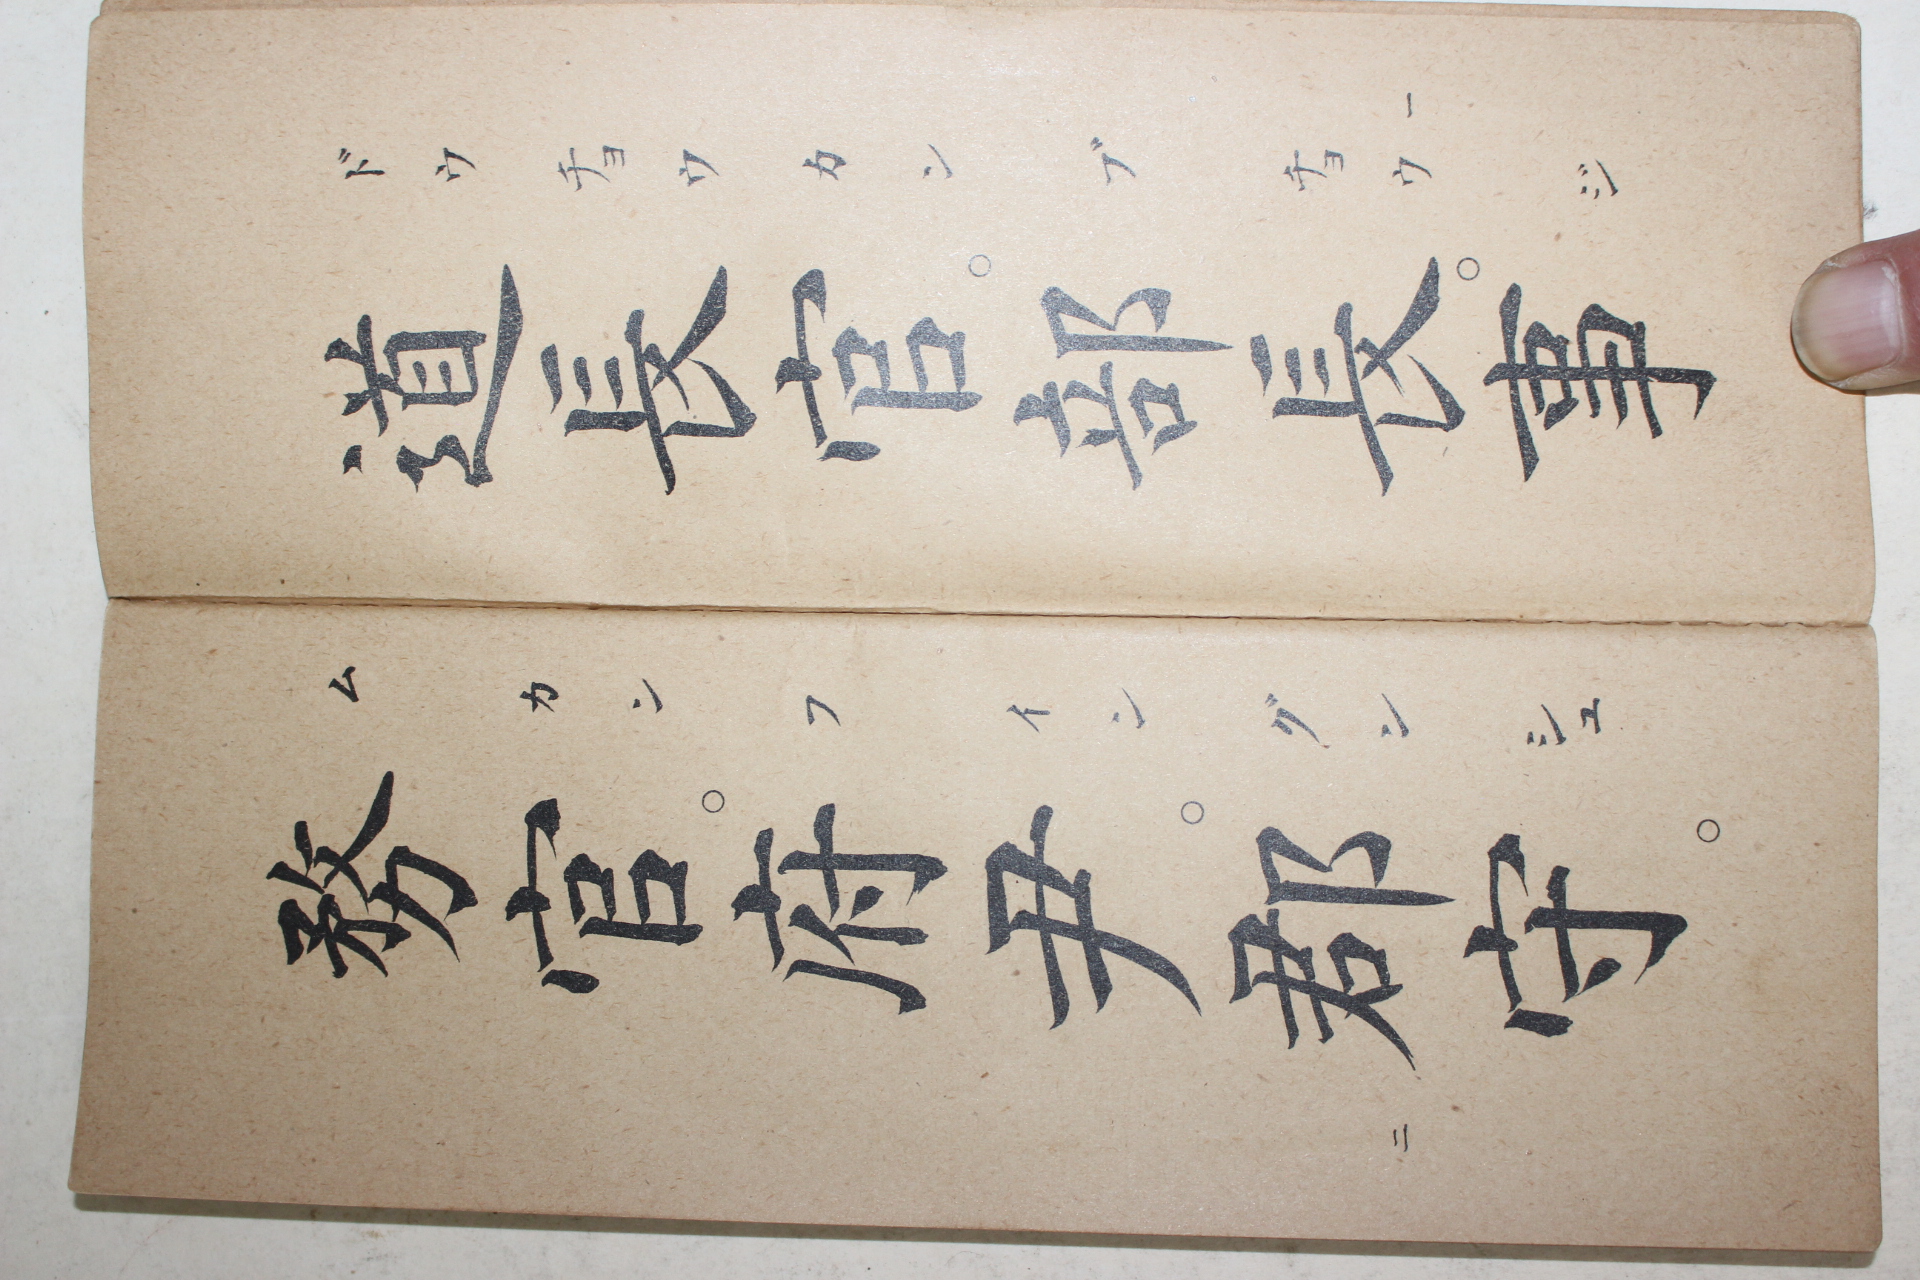 一
ドウチョウカンブチョウジ
道長官。部長。事
ムカンフインググンシュ
務官。府尹。郡守。
二